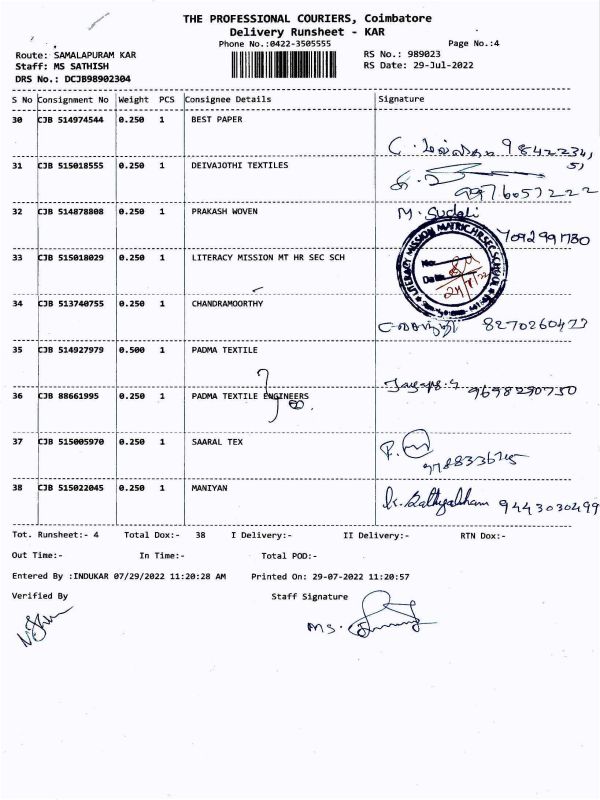 THE PROFESSIONAL COURIERS, Coimbatore
Delivery Runsheet - KAR
Phone No.:0422-3505555 Page No.:4
Route: SAMALAPURAM KAR RS No.: 989023
Staff: MS SATHISH RS Date: 29-Jul-2022
DRS No.: DCJB98902304
S No Consignment No Weight PCS Consignee Details Signature
30 CJB 514974544 0.250 1 BEST PAPER
9842234,
31 CJB 515018555 0.250 1 DEIVAJOTHI TEXTILES 51
9976057222
32 CJB 514878808 0.250 1 PRAKASH WOVEN M. Sudali
7092991780
33 CJB 515018029 0.250 1 LITERACY MISSION MT HR SEC SCH
LITERACY MISSION MATRIC.HR.SEC.SCHOOL
No.
Date
34 CJB 513740755 0.250 1 CHANDRAMOORTHY
8270260477
35 CJB 514927979 0.500 1 PADMA TEXTILE
9698290750
36 CJB 88661995 0.250 1 PADMA TEXTILE ENGINEERS
37 CJB 515005970 0.250 1 SAARAL TEX
9788336745
38 CJB 515022045 0.250 1 MANIYAN
9443030499
Tot. Runsheet:- 4 Total Dox:- 38 I Delivery:- II Delivery:- RTN Dox:-
Out Time:- In Time:- Total POD:-
Entered By :INDUKAR 07/29/2022 11:20:28 AM Printed On: 29-07-2022 11:20:57
Verified By Staff Signature
MS.